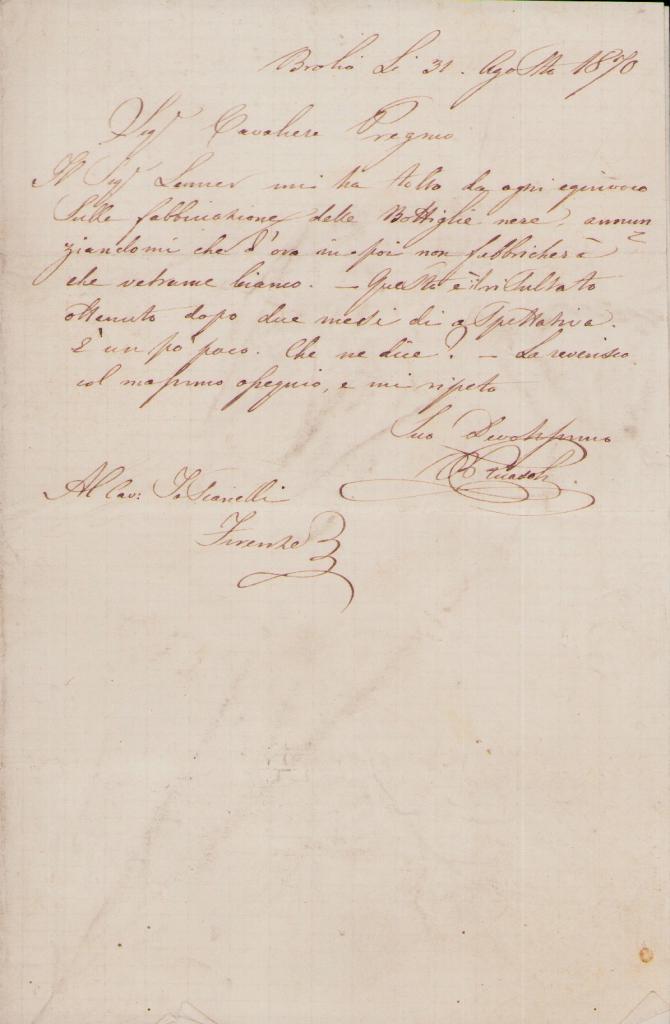 Brolio Li 31. Agosto 1870
Sigr Cavaliere Pregmo
Il Sigr Lemmer mi ha tolto da ogni equivoco
Sulle fabbricazione delle Bottiglie nere, annun
ziandomi che d'ora in poi non fabbricherà
che vetrame bianco. — Questo è il risultato
ottenuto dopo due mesi di aspettativa.
È un pò poco. Che ne dice? — La reverisco
col massimo ossequio, e mi ripeto
Suo Devotissimo
B Ricasoli
Al Cav: Toscanelli
Firenze